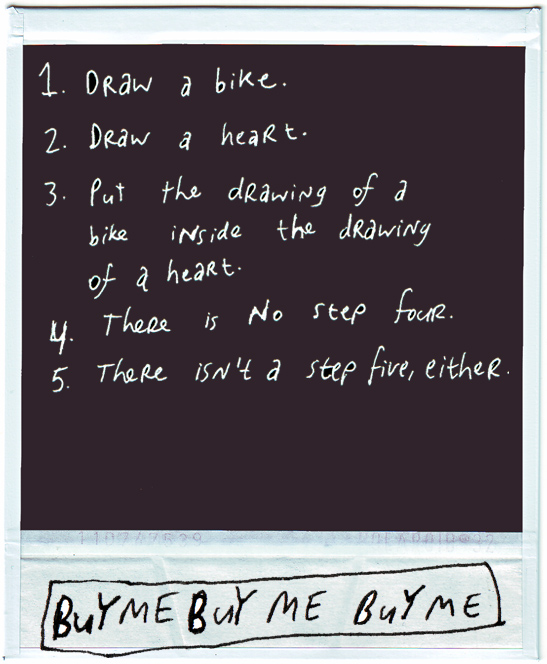 1. Draw a bike.
2. Draw a heart.
3. Put the drawing of a
bike inside the drawing
of a heart.
4. There is No step four.
5. There isn't a step five, either.
BUY ME BUY ME BUY ME